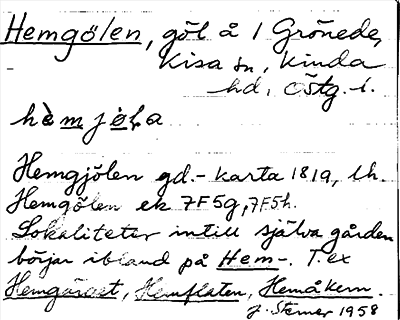 Hemgölen, göl å 1 Grönede,
Kisa sn, Kinda
hd, Östg. l.
Hemgjölen gd.-karta 1819, lh.
Hemgölen ek 7F5g, 7F5h.
Lokaliteter intill själva gården
börjar ibland på Hem-. T.ex
Hemgärdet, Hemflaten, Hemåkern.
J. Sterner 1958